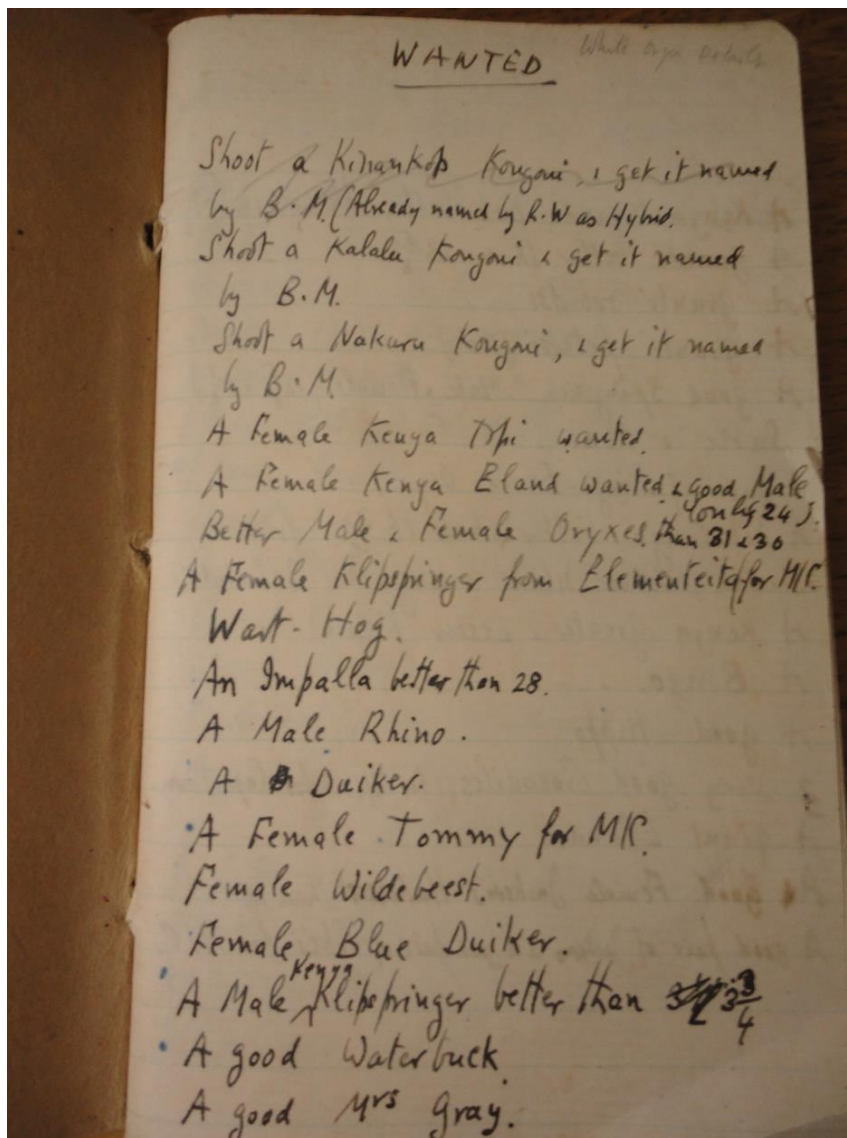 WANTED
White Oryx Details
Shoot a Kinankop Kongoni, & get it named
by B.M. (Already named by R.W as Hybrid.
Shoot a Kalalu Kongoni & get it named
by B.M.
Shoot a Nakuru Kongoni, & get it named
by B.M.
A Female Kenya Topi wanted.
A Female Kenya Eland wanted & good Male
(only 24).
Better Male & Female Oryxes than 31 & 30
A Female Klipspringer from Elementeita for MK.
Wart-Hog.
An Impalla better than 28.
A Male Rhino.
A Duiker.
A Female Tommy for MK.
Female Wildebeest.
Female Blue Duiker.
A Male Kenya Klipspringer better than 3 3/4
A good Waterbuck
A good Mrs Gray.